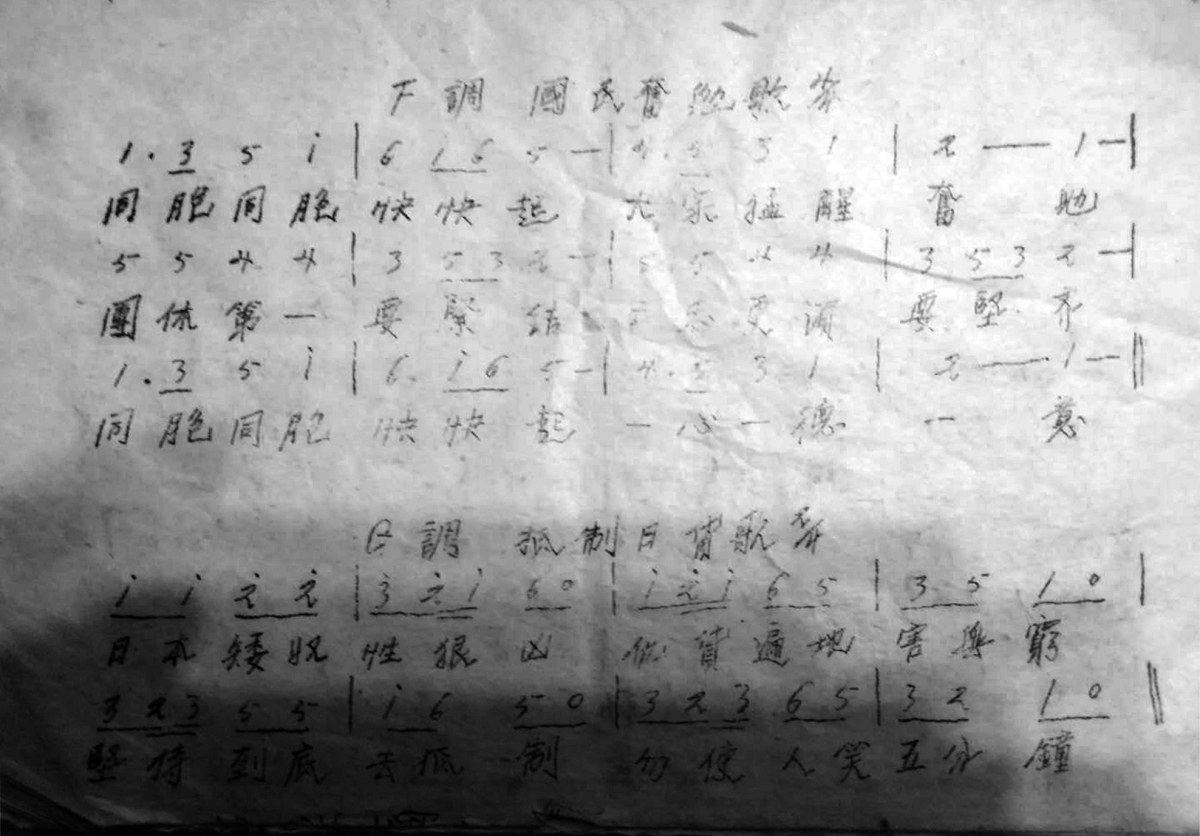 F調 國民奮勉歌
1. 3 5 i | 6 i 6 5 — | 4. 5 3 1 | 2 — 1 —|
同胞同胞 快快起 大家猛醒 奮勉
5 5 4 4 | 3 5 3 2 — | 5 5 4 4 | 3 5 3 2 —|
團体第一 要緊結 更須 要堅
1. 3 5 i | 6. i 6 5 — | 4. 5 3 1 | 2 — 1 —‖
同胞同胞 快快起 一心一德 一意
G調 抵制日貨歌
i i 2 2 | 3 2 i 6 0 | i 2 i 6 5 | 3 5 1 0 |
日本矮奴 性狠凶 仇貨遍地 害無窮
3 2 3 5 5 | i 6 5 0 | 3 2 3 6 5 | 3 2 1 0 ‖
堅持到底 去抵制 勿使人笑 五分鐘